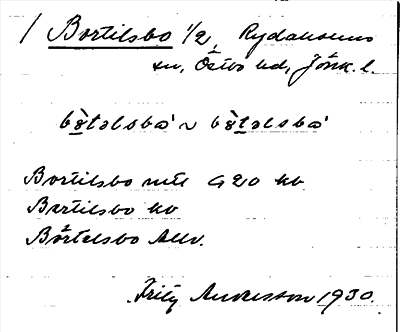 / Bortilsbo 1/2, Rydaholms
sn, Östbo hd, Jönk. l.
bo᷅talsbo ~ bo᷅talsbo
Bortilsbo mtl G20 kb
Bertilsbo kb
Bårtelsbo Allv.
Fritz Andersson 1930.